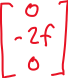 0
-2f
0